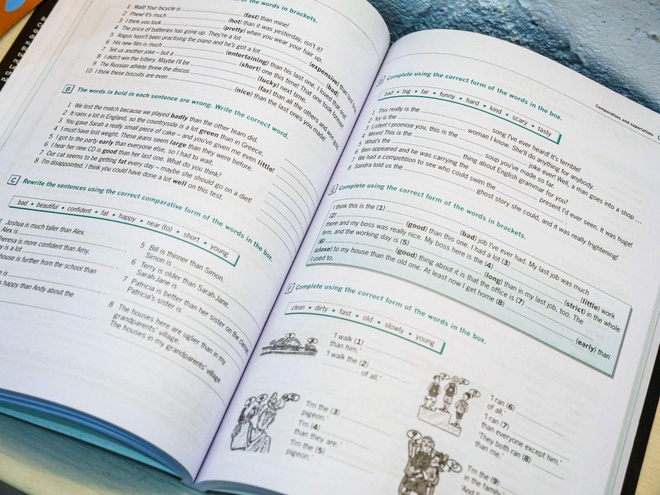 of the words in brackets.
1 Wait! Your bicycle is (fast) than mine!
2 Phew! It's much (hot) than it was yesterday, isn't it?
3 I think you look (pretty) when you wear your hair up.
4 The price of batteries has gone up. They're a lot (expensive) than
5 Angus hasn't been practising the piano and he's got a lot (bad)
6 His new film is much (entertaining) than his last one. I loved that one!
7 Tell us another joke – but a (short) one this time! That one took
8 I didn't win the lottery. Maybe I'll be (lucky) next time.
9 The Russian athlete threw the discus (far) than all the others and won
10 I think these biscuits are even (nice) than the last ones you made!
B The words in bold in each sentence are wrong. Write the correct word.
1 We lost the match because we played badly than the other team did.
2 It rains a lot in England, so the countryside is a lot green than in Greece.
3 You gave Sarah a really small piece of cake – and you've given me even little!
4 I must have lost weight. These jeans seem large than they were before.
5 I got to the party early than everyone else, so I had to wait.
6 I hear her new CD is good than her last one. What do you think?
7 Our cat seems to be getting fat every day – maybe she should go on a diet!
8 I'm disappointed. I think you could have done a lot well on this test.
C Rewrite the sentences using the correct comparative form of the words in the box.
bad • beautiful • confident • fat • happy • near (to) • short • young
Joshua is much taller than Alex.
Alex is
Theresa is more confident than Amy.
is a lot
house is further from the school than
is
happy than Andy about the
5 Bill is thinner than Simon.
Simon is
6 Terry is older than Sarah-Jane.
Sarah-Jane is
7 Patricia is better than her sister on the clarinet.
Patricia's sister is
8 The houses here are uglier than in my
grandparents' village.
The houses in my grandparents' village
Comparatives and superlatives
Complete using the correct form of the words in the box.
bad • big • far • funny • hard • kind • scary • tasty
1 This really is the song I've ever heard! It's terrible!
2 Ivy is the woman I know. She'll do anything for anybody.
3 Listen! I promise you, this is the joke ever! Well, a man goes into a shop ...
4 Mmm! This is the soup you've made so far.
5 What's the thing about English grammar for you?
6 Ben appeared and he was carrying the present I'd ever seen, it was huge!
7 We had a competition to see who could swim the
8 Sandra told us the ghost story she could, and it was really frightening!
Complete using the correct form of the words in brackets.
I think this is the (1) (bad) job I've ever had. My last job was much
(2) (good) than this one. I had a lot (3) (little) work
there and my boss was really nice. My boss here is the (4) (strict) in the whole
firm, and the working day is (5) (long) than in my last job, too. The
(6) (good) thing about it is that the office is (7)
(close) to my house than the old one. At least now I get home (8) (early) than
I used to.
F Complete using the correct form of the words in the box.
clean • dirty • fast • old • slowly • young
'I walk (1)
than him.'
'I walk the (2)
of all.'
'I'm the (3)
pigeon.'
'I'm (4)
than they are.'
'I'm the (5)
pigeon.'
'I ran (6)
of all.'
'I ran (7)
than everyone except him.'
'They both ran (8)
than me.'
'I'm the (9)
in the family.'